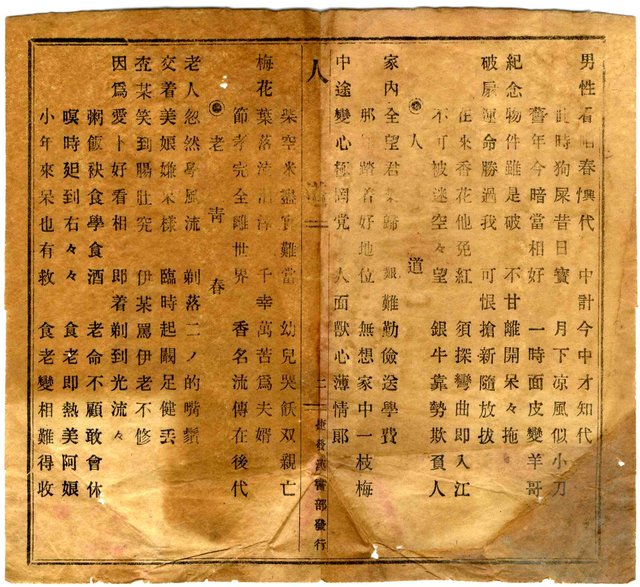 男性看唱春興代 中計今中才知代
此時狗屎昔日寶 月下凉風似小刀
舊年今暗當相好 一時面皮變羊哥
紀念物件雖是破 不甘離開呆々拖
破扇運命勝過我 可恨搶新隨放拔
在來香花他免紅 須探彎曲即入江
不可被迷空々望 銀牛靠勢欺負人
◎人道
家內全望君榮歸 艱難勤儉送學費
那 踏着好地位 無想家中一枝梅
中途變心極罔党 人面獸心薄情郎
人道
二
捷發漢書部發行
柴空米盡實難當 幼兒哭飫双親亡
梅花葉落流清淨 千幸萬苦爲夫婿
節孝完全離世界 香名流傳在後代
◎老青春
老人忽然學風流 剃落二ノ的嘴鬚
交着美娘嫌呆樣 臨時起鬪足健丟
查某笑到腸肚究 伊某罵伊老不修
因爲愛卜好看相 即着剃到光流々
粥飯袂食學食酒 老命不顧敢會休
暝時廻到右々々 食老即熱美阿娘
小年來呆也有救 食老變相難得收